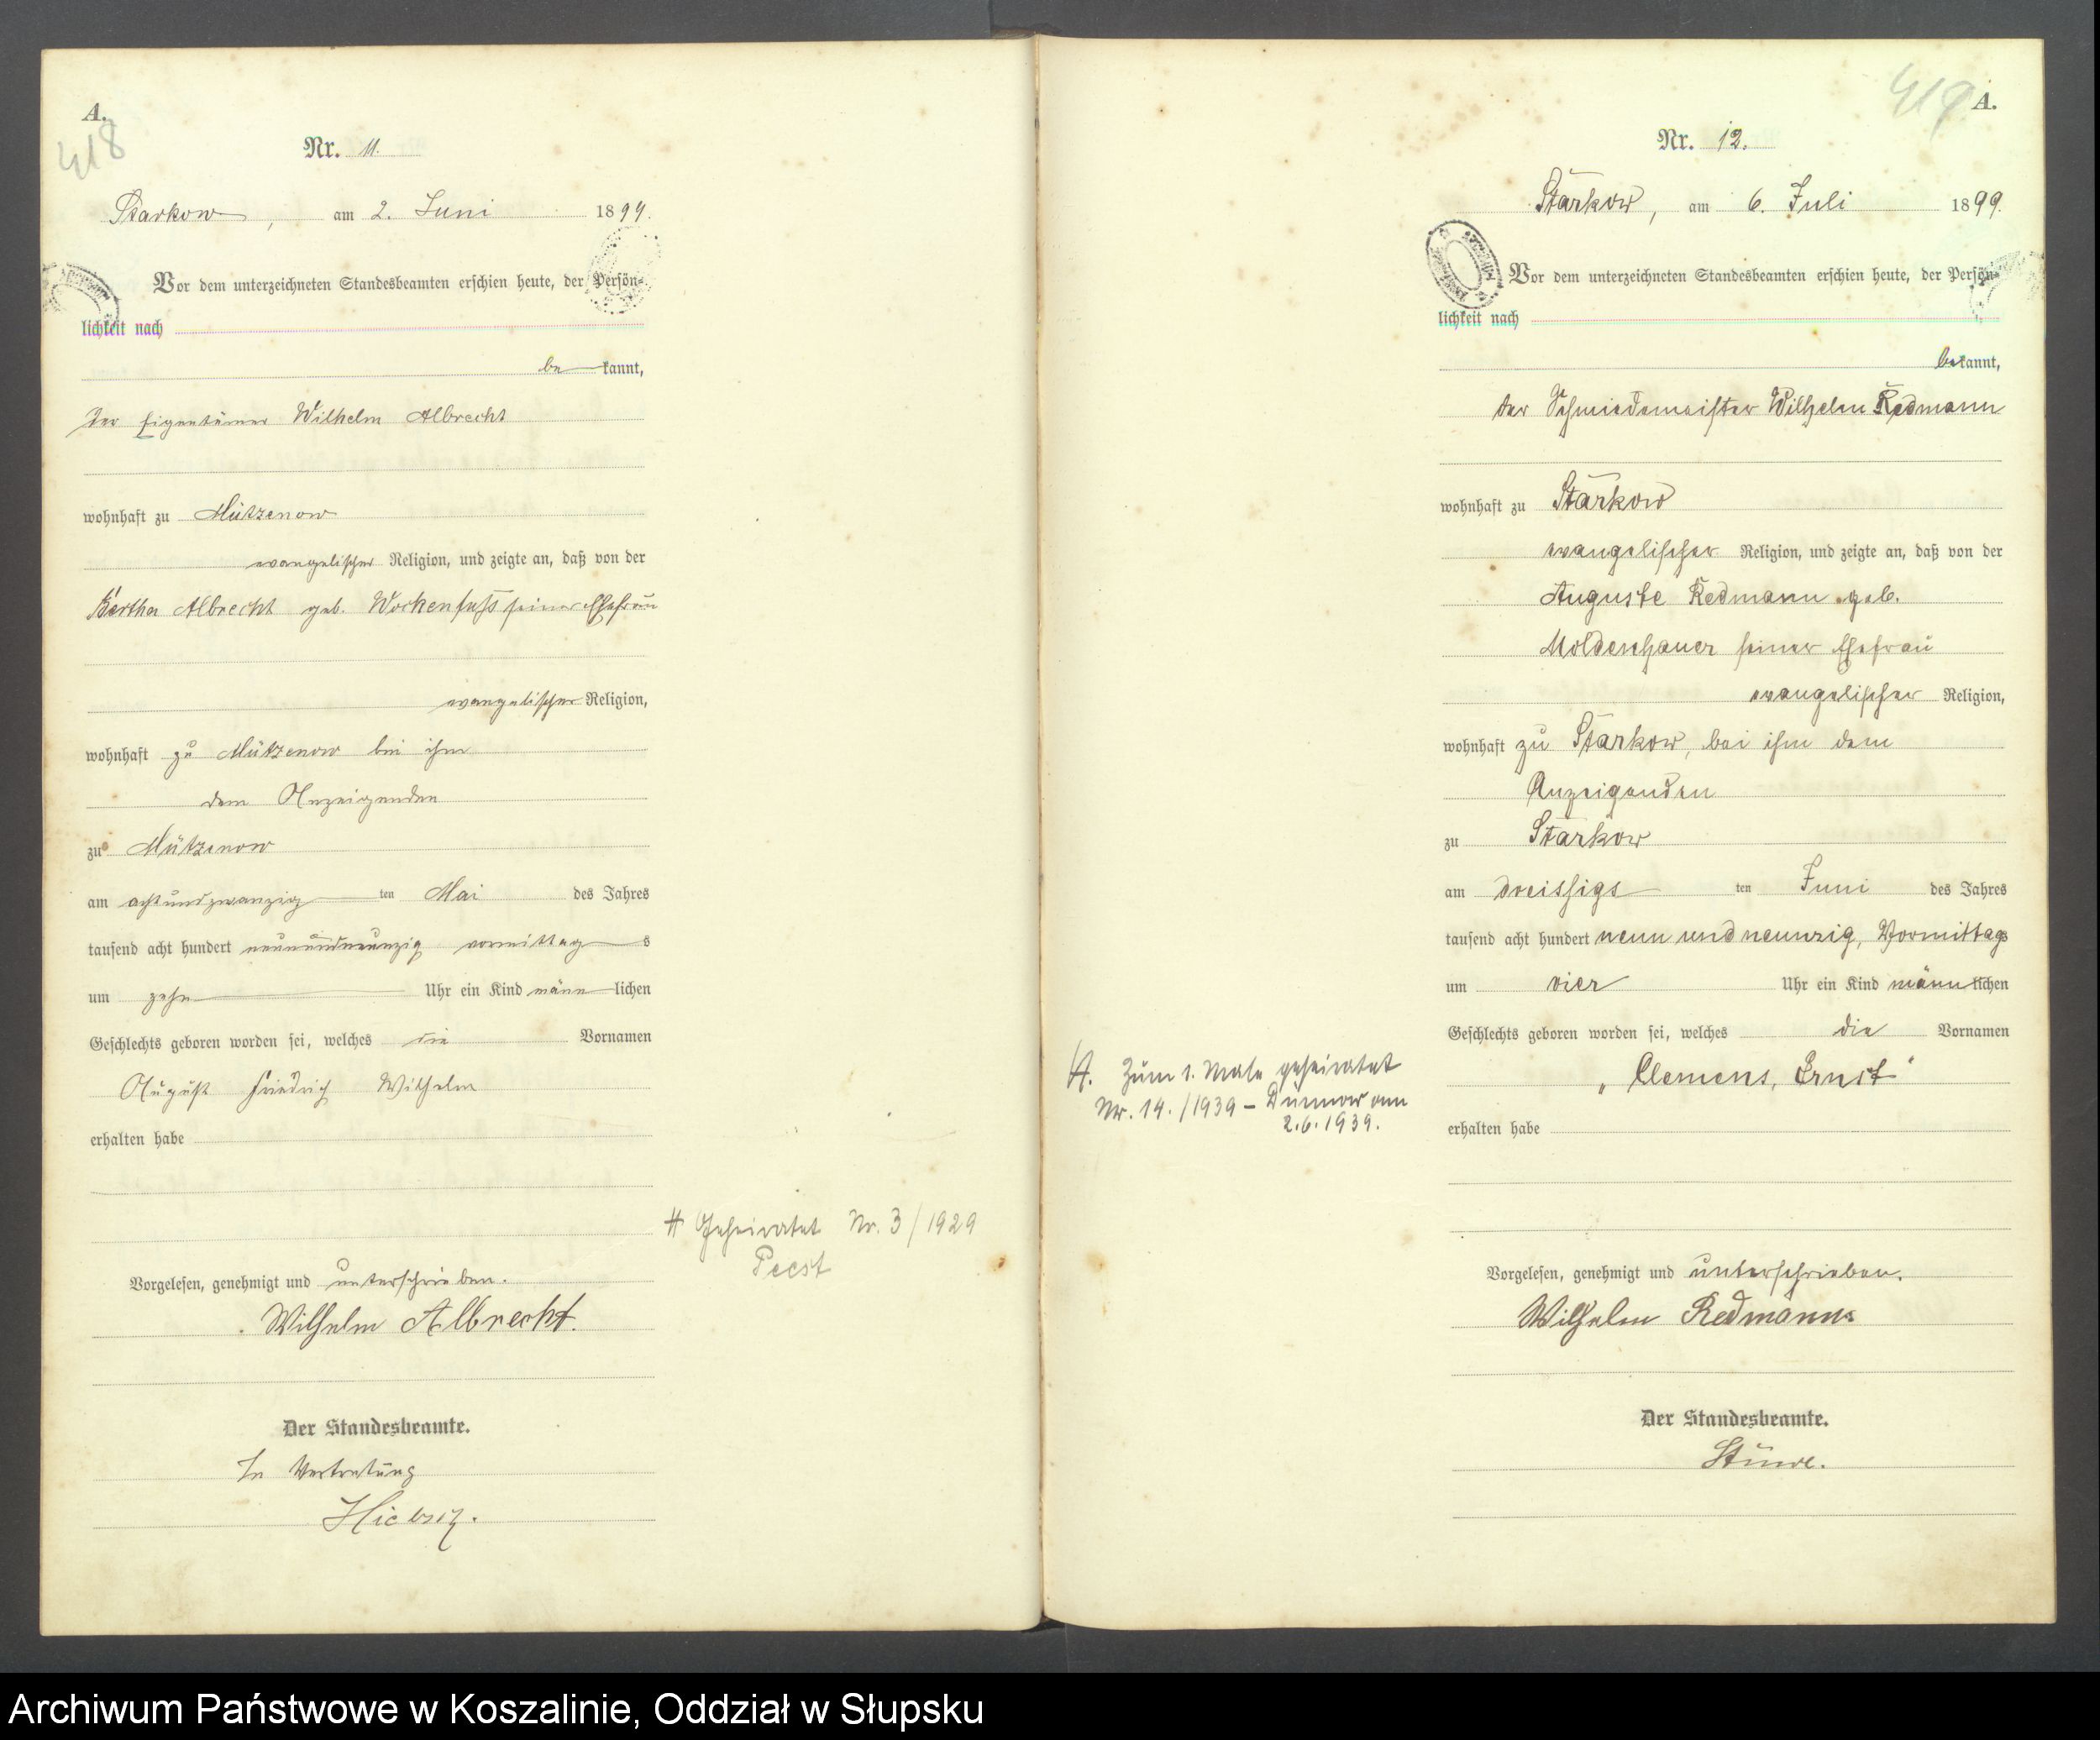 A.
418
Nr. 11.
Starkow, am 2. Juni 1899.
Vor dem unterzeichneten Standesbeamten erschien heute, der Persön-
lichkeit nach
be kannt,
der Eigentümer Wilhelm Albrecht
wohnhaft zu Mützenow
evangelischer Religion, und zeigte an, daß von der
Bertha Albrecht geb. Wockenfuß seiner Ehefrau
evangelischer Religion,
wohnhaft zu Mützenow bei ihm
dem Anzeigenden
zu Mützenow
am achtundzwanzig ten Mai des Jahres
tausend acht hundert neunundneunzig vormittag s
um zehn Uhr ein Kind männ lichen
Geschlechts geboren worden sei, welches die Vornamen
August Friedrich Wilhelm
erhalten habe
Vorgelesen, genehmigt und unterschrieben.
Wilhelm Albrecht.
Der Standesbeamte.
In Vertretung
H Geheiratet Nr. 3/1929
Peest
419
A.
Nr. 12.
Starkow, am 6. Juli 1899.
Vor dem unterzeichneten Standesbeamten erschien heute, der Persön-
lichkeit nach
bekannt,
der Schmiedemeister Wilhelm Redmann
wohnhaft zu Starkow
evangelischer Religion, und zeigte an, daß von der
Auguste Redmann geb.
Moldenhauer seiner Ehefrau
evangelischer Religion,
wohnhaft zu Starkow, bei ihm dem
Anzeigenden
zu Starkow
am dreissigs ten Juni des Jahres
tausend acht hundert neun und neunzig, Vormittags
um vier Uhr ein Kind männlichen
Geschlechts geboren worden sei, welches die Vornamen
„Clemens, Ernst“
erhalten habe
H. Zum 1. Male geheiratet
Nr. 14./1939 – Dünnow am
2.6.1939.
Vorgelesen, genehmigt und unterschrieben.
Wilhelm Redmann
Der Standesbeamte.
Stüwe.
Archiwum Państwowe w Koszalinie, Oddział w Słupsku